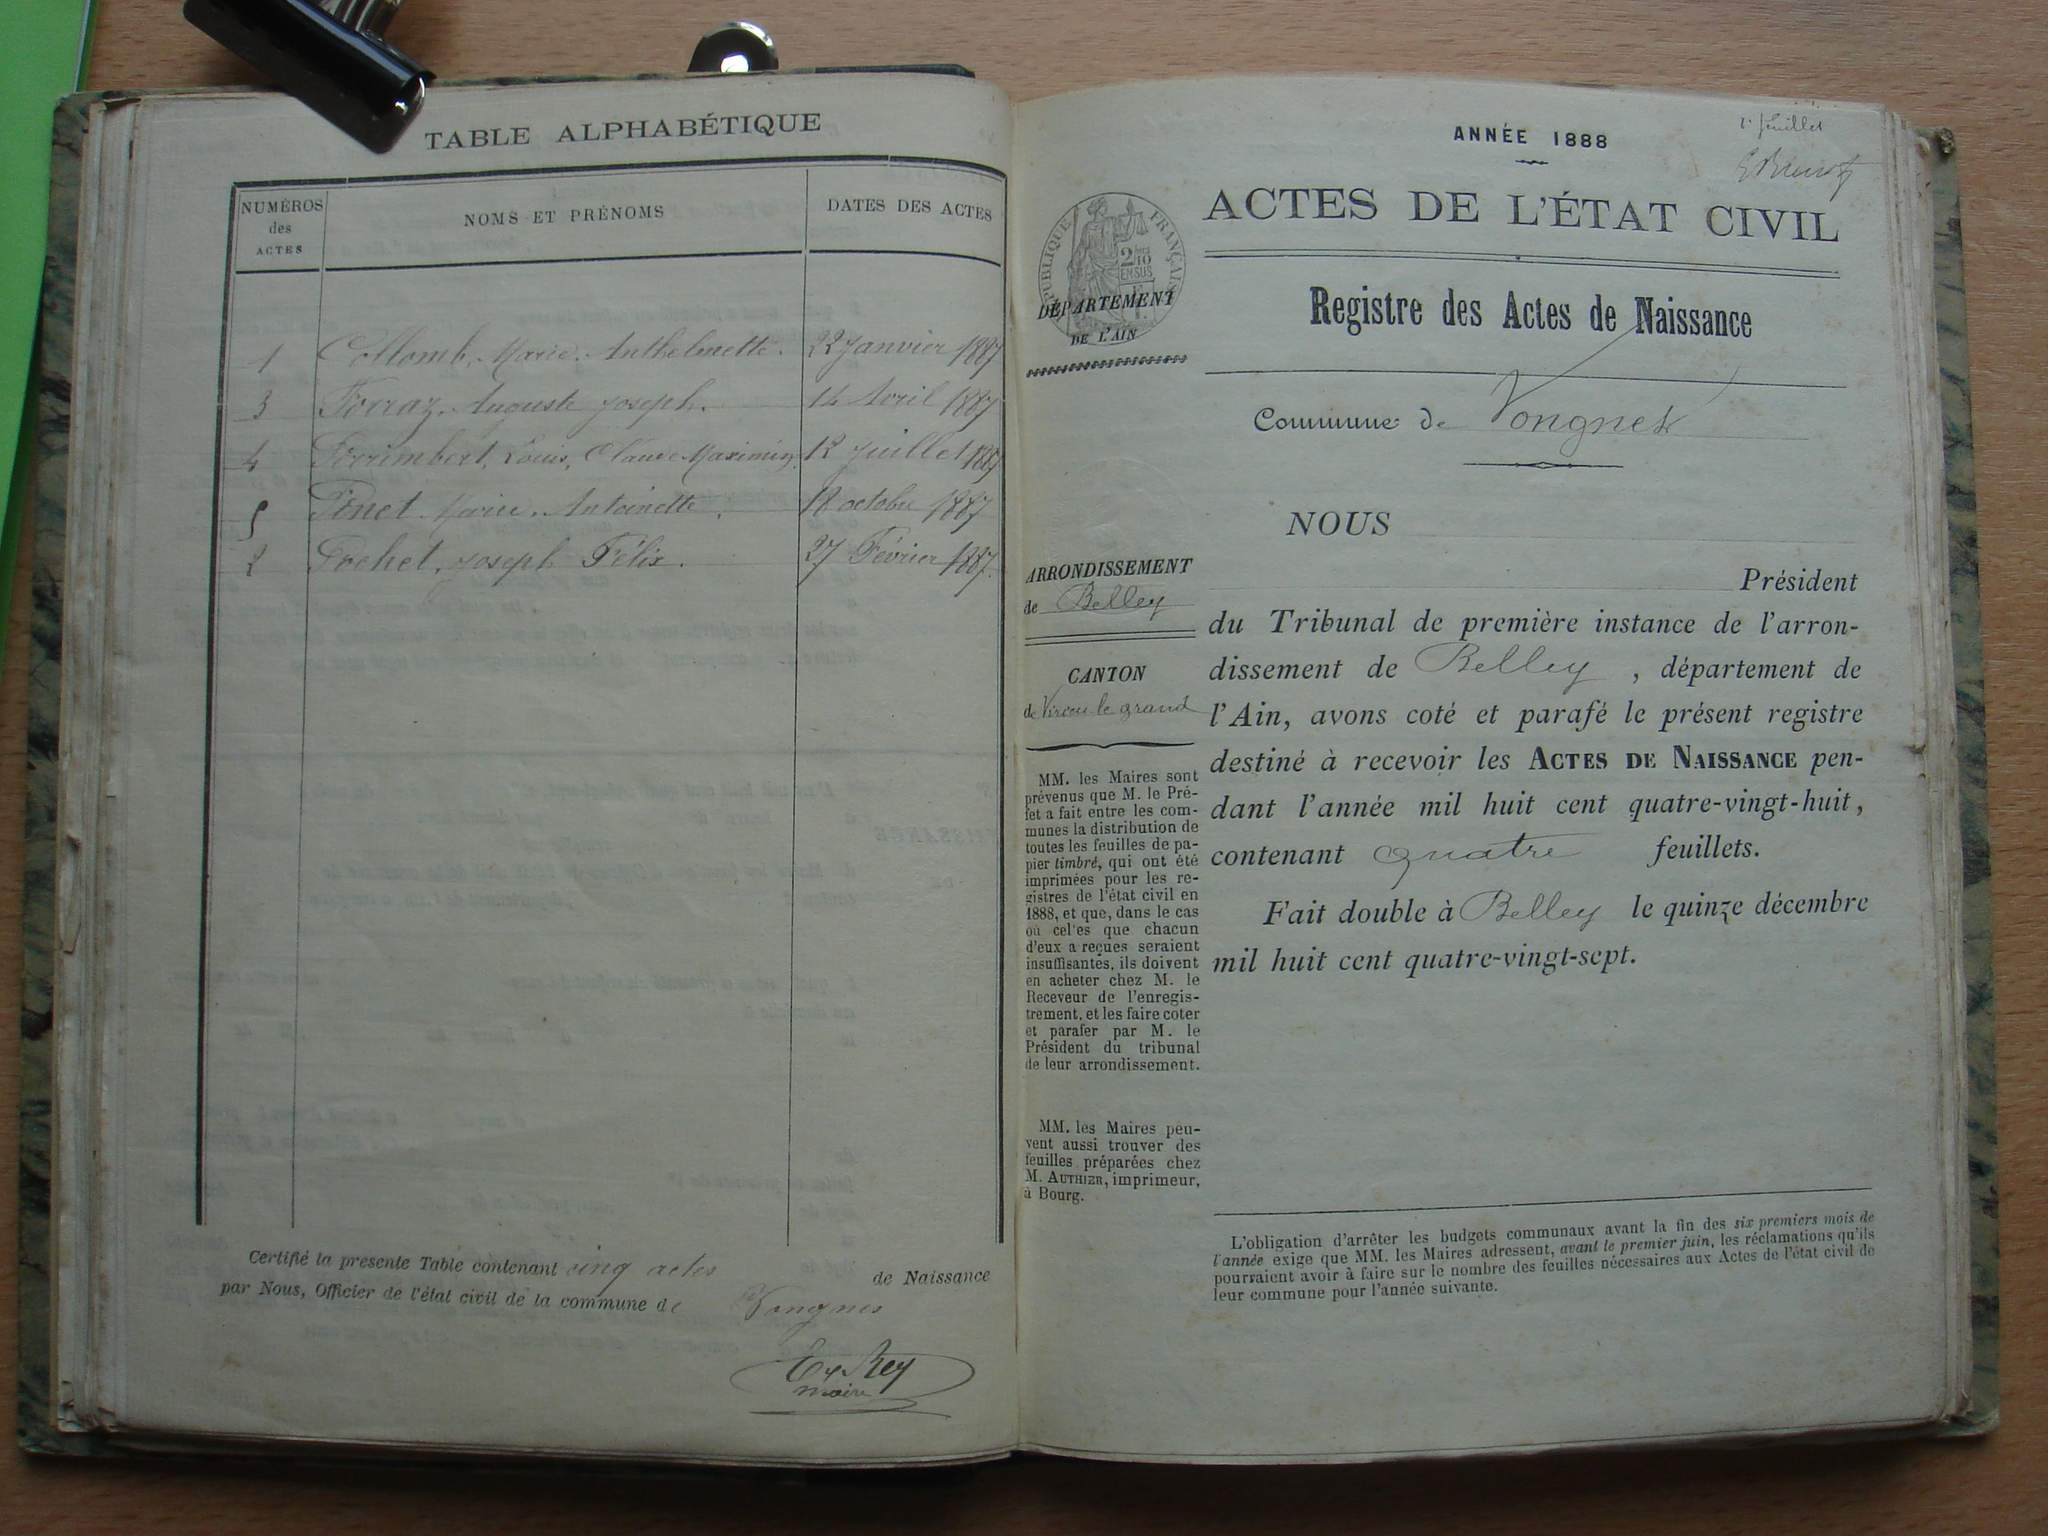 TABLE ALPHABÉTIQUE
NUMÉROS des ACTES NOMS ET PRÉNOMS DATES DES ACTES
1 Collomb, Marie, Anthelmette. 22 Janvier 1887
3 Forraz, Auguste Joseph. 14 Avril 1887
4 Louis, Claude Maximin. 12 Juillet 1887
5 Marie, Antoinette. 18 octobre 1887
2 Pochet, Joseph Félix. 27 Février 1887.
Certifié la presente Table contenant cinq actes de Naissance
par Nous, Officier de l'état civil de la commune de Vongnes
Ey Rey
maire
1er feuillet
ANNÉE 1888
ACTES DE L'ÉTAT CIVIL
RÉPUBLIQUE FRANÇAISE
2/10
EN SUS
DÉPARTEMENT
DE L'AIN
Registre des Actes de Naissance
Commune de Vongnes
NOUS
Président
du Tribunal de première instance de l'arron-
dissement de Belley, département de
l'Ain, avons coté et parafé le présent registre
destiné à recevoir les ACTES DE NAISSANCE pen-
dant l'année mil huit cent quatre-vingt-huit,
contenant quatre feuillets.
Fait double à Belley le quinze décembre
mil huit cent quatre-vingt-sept.
ARRONDISSEMENT
de Belley
CANTON
de Virieu le grand
MM. les Maires sont
prévenus que M. le Pré-
fet a fait entre les com-
munes la distribution de
toutes les feuilles de pa-
pier timbré, qui ont été
imprimées pour les re-
gistres de l'état civil en
1888, et que, dans le cas
où cel'es que chacun
d'eux a reçues seraient
insuffisantes, ils doivent
en acheter chez M. le
Receveur de l'enregis-
trement, et les faire coter
et parafer par M. le
Président du tribunal
de leur arrondissement.
MM. les Maires peu-
vent aussi trouver des
feuilles préparées chez
M. AUTHIER, imprimeur,
à Bourg.
L'obligation d'arrêter les budgets communaux avant la fin des six premiers mois de
l'année exige que MM. les Maires adressent, avant le premier juin, les réclamations qu'ils
pourraient avoir à faire sur le nombre des feuilles nécessaires aux Actes de l'état civil de
leur commune pour l'année suivante.